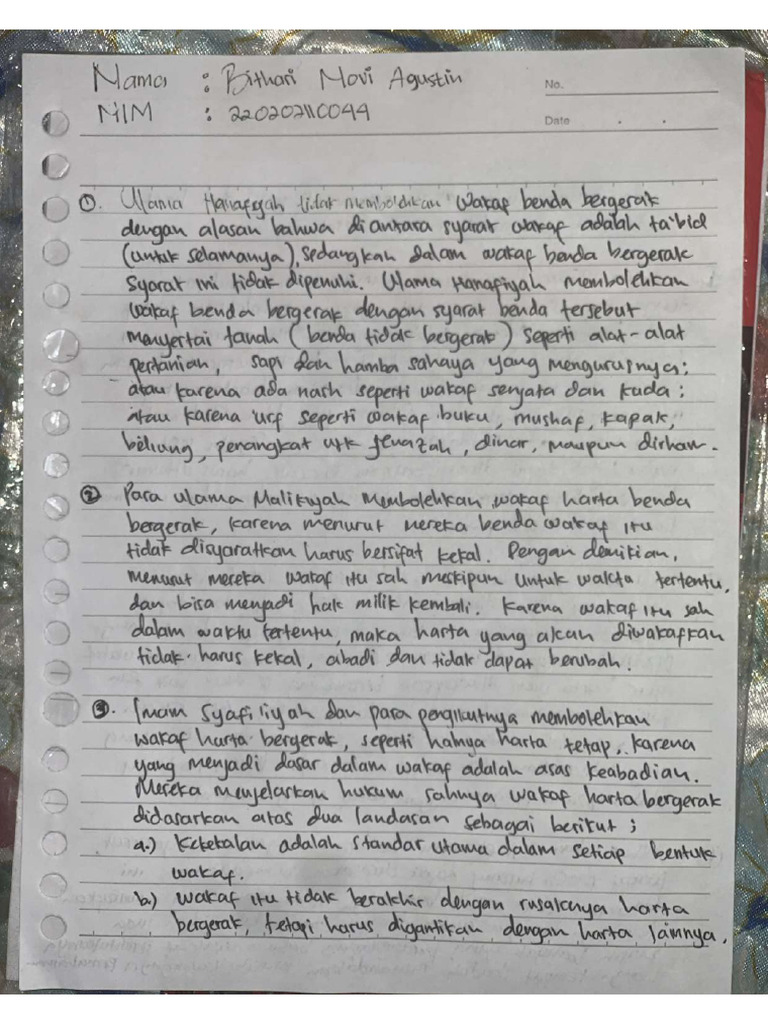 Nama : Bithari Novi Agustin
NIM : 220202110044
No.
Date . .
①. Ulama Hanafiyah tidak membolehkan wakaf benda bergerak
dengan alasan bahwa di antara syarat wakaf adalah ta'bid
(untuk selamanya), sedangkan dalam wakaf benda bergerak
syarat ini tidak dipenuhi. Ulama Hanafiyah membolehkan
wakaf benda bergerak dengan syarat benda tersebut
menyertai tanah (benda tidak bergerak) seperti alat-alat
pertanian, sapi dan hamba sahaya yang mengurusnya;
atau karena ada nash seperti wakaf senjata dan kuda;
atau karena 'urf seperti wakaf buku, mushaf, kapak,
beliung, penangkat utk jenazah, dinar, maupun dirham.
② Para ulama Malikiyah membolehkan wakaf harta benda
bergerak, karena menurut mereka benda wakaf itu
tidak disyaratkan harus bersifat kekal. Dengan demikian,
menurut mereka wakaf itu sah meskipun untuk waktu tertentu,
dan bisa menjadi hak milik kembali. Karena wakaf itu sah
dalam waktu tertentu, maka harta yang akan diwakafkan
tidak harus kekal, abadi dan tidak dapat berubah.
③. Imam Syafi'iyah dan para pengikutnya membolehkan
wakaf harta bergerak, seperti halnya harta tetap, karena
yang menjadi dasar dalam wakaf adalah asas keabadian.
Mereka menjelaskan hukum sahnya wakaf harta bergerak
didasarkan atas dua landasan sebagai berikut ;
a.) Kekekalan adalah standar utama dalam setiap bentuk
wakaf.
b.) wakaf itu tidak berakhir dengan rusaknya harta
bergerak, tetapi harus digantikan dengan harta lainnya.